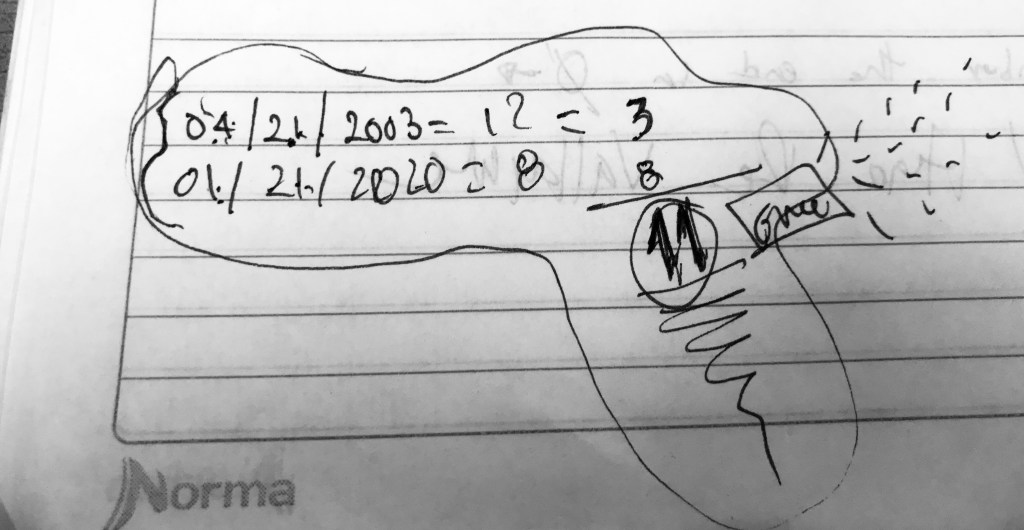 04/21/2003 = 12 = 3
01/21/2020 = 8 8
11
Norma